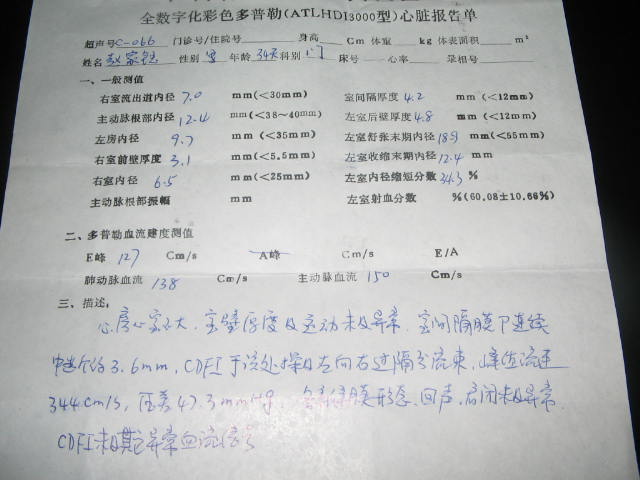 全数字化彩色多普勒(ATLHDI3000型)心脏报告单
超声号C-066 门诊号/住院号 身高 Cm 体重 kg 体表面积 m²
姓名 赵家 性别 男 年龄 34天 科别 门 床号 心率 录相号
一、一般测值
右室流出道内径 7.0 mm(<30mm) 室间隔厚度 4.2 mm (<12mm)
主动脉根部内径 12.4 mm(<38~40mm) 左室后壁厚度 4.8 mm (<12mm)
左房内径 9.7 mm(<35mm) 左室舒张末期内径 18.9 mm(<55mm)
右室前壁厚度 3.1 mm(<5.5mm) 左室收缩末期内径 12.4 mm
右室内径 6.5 mm(<25mm) 左室内径缩短分数 34.3 %
主动脉根部振幅 mm 左室射血分数 %(60.08±10.66%)
二、多普勒血流速度测值
E峰 127 Cm/s A峰 Cm/s E/A
肺动脉血流 138 Cm/s 主动脉血流 150 Cm/s
三、描述:
心房心室不大,室壁厚度及运动未见异常,室间隔膜下连续
中断约3.6mm,CDFI于该处探及左向右过隔分流束,峰值流速
344cm/s,压差47.3mmHg,各瓣膜形态、回声、启闭未见异常
CDFI未见异常血流信号